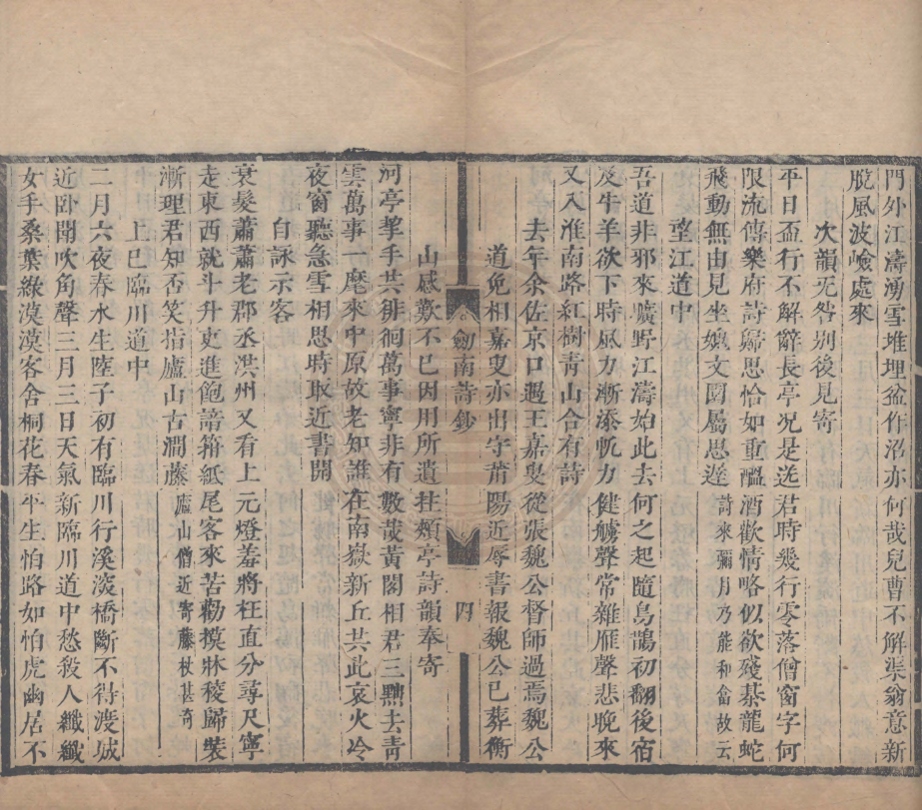 門外江濤湧雪堆埋盆作沼亦何哉兒曹不解渠翁意新
脫風波嶮處來
次韻无咎別後見寄
平日盃行不解辭長亭况是送君時幾行零落僧窗字何
限流傳樂府詩歸思恰如重醞酒歡情略似欲殘棊龍蛇
飛動無由見坐媿文園屬思遲詩來彌月乃能和畣故云
望江道中
吾道非邪來曠野江濤始此去何之起隨烏鵲初翻後宿
及牛羊欲下時風力漸添帆力健艣聲常雜雁聲悲晚來
又入淮南路紅樹青山合有詩
去年余佐京口遇王嘉叟從張魏公督師過焉魏公
道免相嘉叟亦出守莆陽近辱書報魏公已葬衡
劒南詩鈔
四
山感歎不已因用所遺拄頰亭詩韻奉寄
河亭挈手共徘徊萬事寧非有數哉黃閣相君三黜去青
雲萬事一麾來中原故老知誰在南嶽新丘共此哀火冷
夜窗聽急雪相思時取近書開
自詠示客
衰髮蕭蕭老郡丞洪州又看上元燈羞將枉直分尋尺寧
走東西就斗升吏進飽諳箝紙尾客來苦勸摸牀稜歸裝
漸理君知否笑指廬山古澗藤廬山僧近寄藤杖甚奇
上巳臨川道中
二月六夜春水生陸子初有臨川行溪淡橋斷不得渡城
近臥聞吹角聲三月三日天氣新臨川道中愁殺人纖纖
女手桑葉綠漠漠客舍桐花春平生怕路如怕虎幽居不